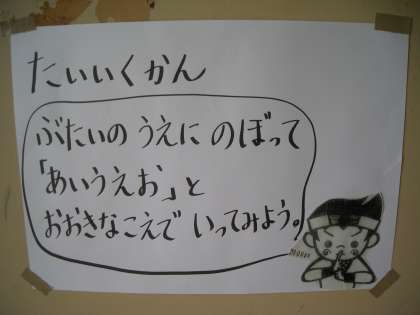 たいいくかん
ぶたいの うえに のぼって
「あいうえお」と
おおきなこえで いってみよう。